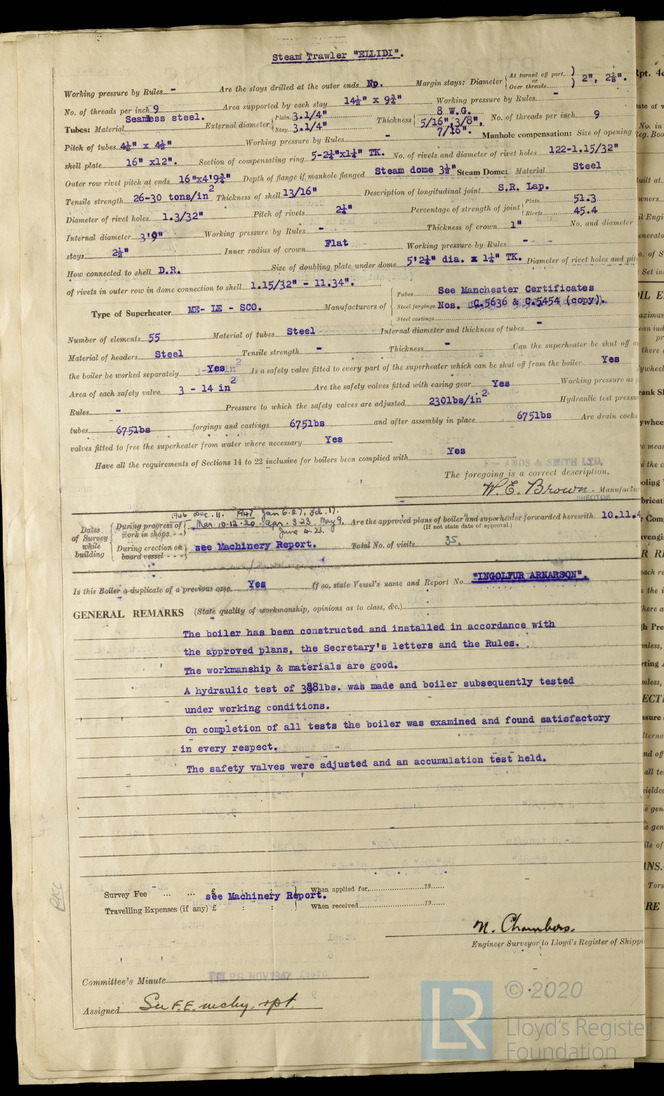 Steam Trawler "ELLIDI".
Working pressure by Rules - Are the stays drilled at the outer ends No. Margin stays: Diameter { At turned off part. or Over threads } 2", 2⅛".
No. of threads per inch 9 Area supported by each stay 14½" x 9¾" Working pressure by Rules -
Tubes: Material Seamless steel. External diameter { Plain 3.1/4" Stay 3.1/4" Thickness { 8 W.G. 5/16", 3/8", 7/16". No. of threads per inch 9
Pitch of tubes 4½" x 4½" Working pressure by Rules - Manhole compensation: Size of opening
shell plate 16" x12". Section of compensating ring 5-2¼"x1¼" TK. No. of rivets and diameter of rivet holes 122-1.15/32"
Outer row rivet pitch at ends 16"x4'9¾" Depth of flange if manhole flanged Steam dome 3½" Steam Dome: Material Steel
Tensile strength 26-30 tons/in² Thickness of shell 13/16" Description of longitudinal joint S.R. Lap.
Diameter of rivet holes 1.3/32" Pitch of rivets 2¼" Percentage of strength of joint { Plate 51.3 Rivets 45.4
Internal diameter 3'9" Working pressure by Rules - Thickness of crown 1" No. and diameter
stays 2½" Inner radius of crown Flat Working pressure by Rules -
How connected to shell D.R. Size of doubling plate under dome 5'2¼" dia. x 1¼" TK. Diameter of rivet holes and
of rivets in outer row in dome connection to shell 1.15/32" - 11.34".
Type of Superheater ME- LE - SCO. Manufacturers of { Tubes Steel forgings Steel castings See Manchester Certificates Nos. C.5636 & C.5454 (copy).
Number of elements 55 Material of tubes Steel Internal diameter and thickness of tubes -
Material of headers Steel Tensile strength - Thickness - Can the superheater be shut off
the boiler be worked separately Yes Is a safety valve fitted to every part of the superheater which can be shut off from the boiler Yes
Area of each safety valve 3 - 14 in² Are the safety valves fitted with easing gear Yes Working pressure as
Rules - Pressure to which the safety valves are adjusted 230lbs/in² Hydraulic test pressure
tubes 675lbs forgings and castings 675lbs and after assembly in place 675lbs Are drain cocks
valves fitted to free the superheater from water where necessary Yes
Have all the requirements of Sections 14 to 22 inclusive for boilers been complied with Yes
AMOS & SMITH LTD.
The foregoing is a correct description,
W. E. Brown Manufacturer
DIRECTOR
1946 Dec. 11. 1947 Jan 6.27, Feb.17.
Dates of Survey while building { During progress of work in shops - - Mar. 10.12.20. Apr. 3.23. May 9. June 4.23. Are the approved plans of boiler and superheater forwarded herewith 10.11.4
(If not state date of approval.)
During erection on board vessel - - - see Machinery Report. Total No. of visits 35.
Is this Boiler a duplicate of a previous case Yes If so, state Vessel's name and Report No. "INGOLFUR ARNARSON".
GENERAL REMARKS (State quality of workmanship, opinions as to class, &c.)
The boiler has been constructed and installed in accordance with
the approved plans, the Secretary's letters and the Rules.
The workmanship & materials are good.
A hydraulic test of 388lbs. was made and boiler subsequently tested
under working conditions.
On completion of all tests the boiler was examined and found satisfactory
in every respect.
The safety valves were adjusted and an accumulation test held.
Survey Fee ... ... £ see Machinery Report. When applied for 19
Travelling Expenses (if any) £ : : When received 19
N. Chambers.
Engineer Surveyor to Lloyd's Register of Shipp
Committee's Minute FRI. 28 NOV 1947
Assigned See F.E. mchy. rpt.
LR © 2020
Lloyd's Register
Foundation